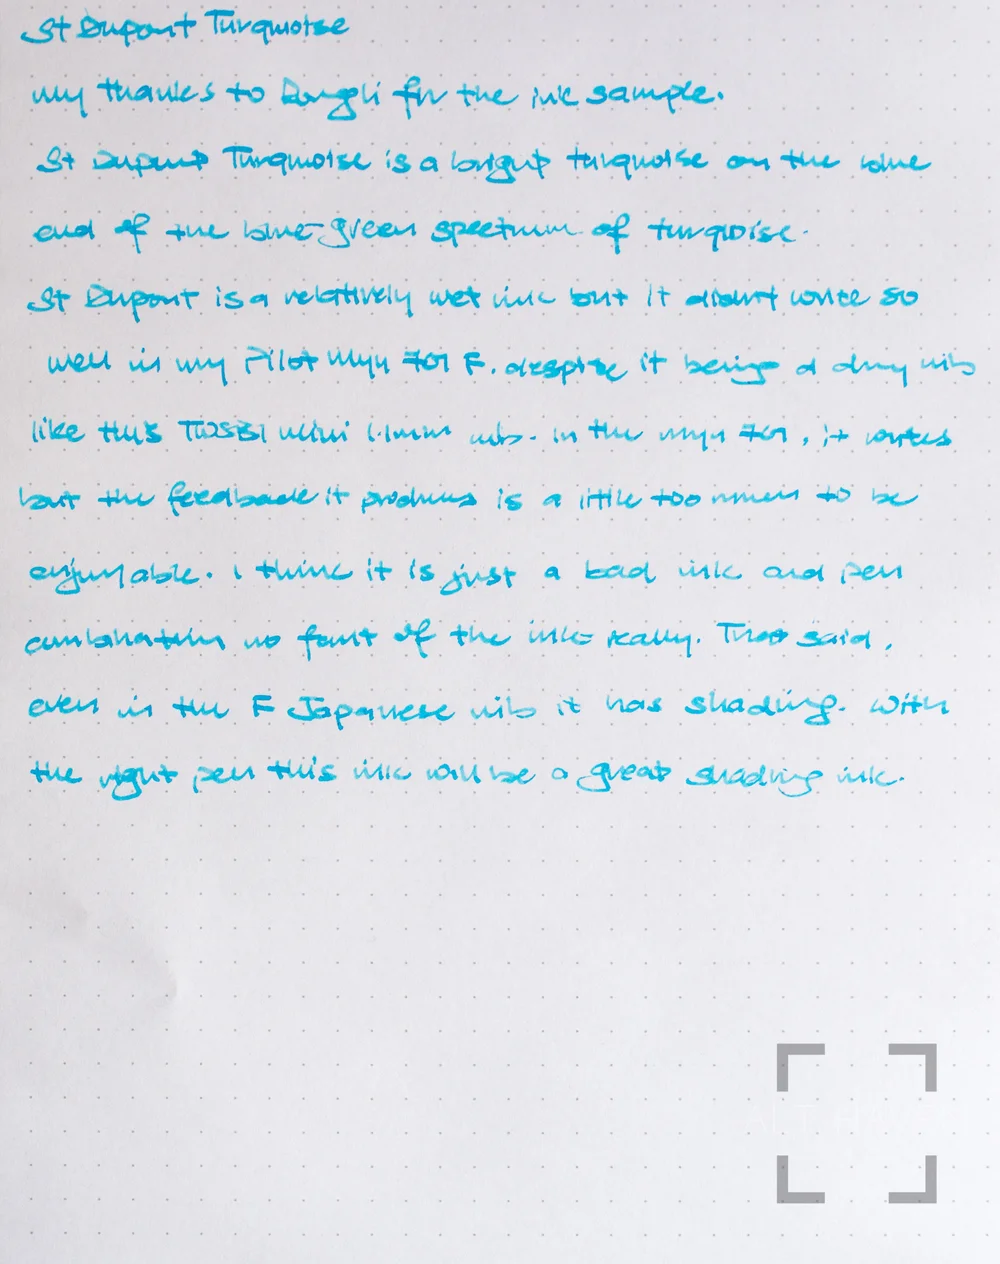 St Dupont Turquoise
my thanks to for the ink sample.
St Dupont Turquoise is a bright turquoise on the blue
end of the blue-green spectrum of turqoise.
St Dupont is a relatively wet ink but it didn't write so
well in my Pilot Myu 701 F. despite it being a dry nib
like this TWSBI mini 1.1mm nib. In the myu 701, it writes
but the feedback it produces is a little too much to be
enjoyable. I think it is just a bad ink and pen
combination no fault of the ink really. That said,
even in the F Japanese nib it has shading. With
the right pen this ink will be a great shading ink.